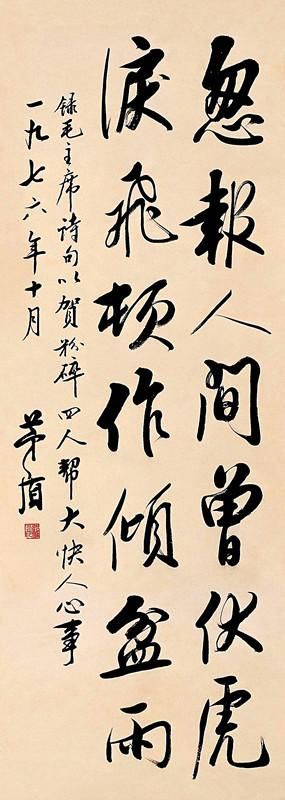 忽報人间曾伏虎
淚飛顿作傾盆雨
録毛主席诗句以賀粉碎四人幫大快人心事
一九七六年十月
茅盾